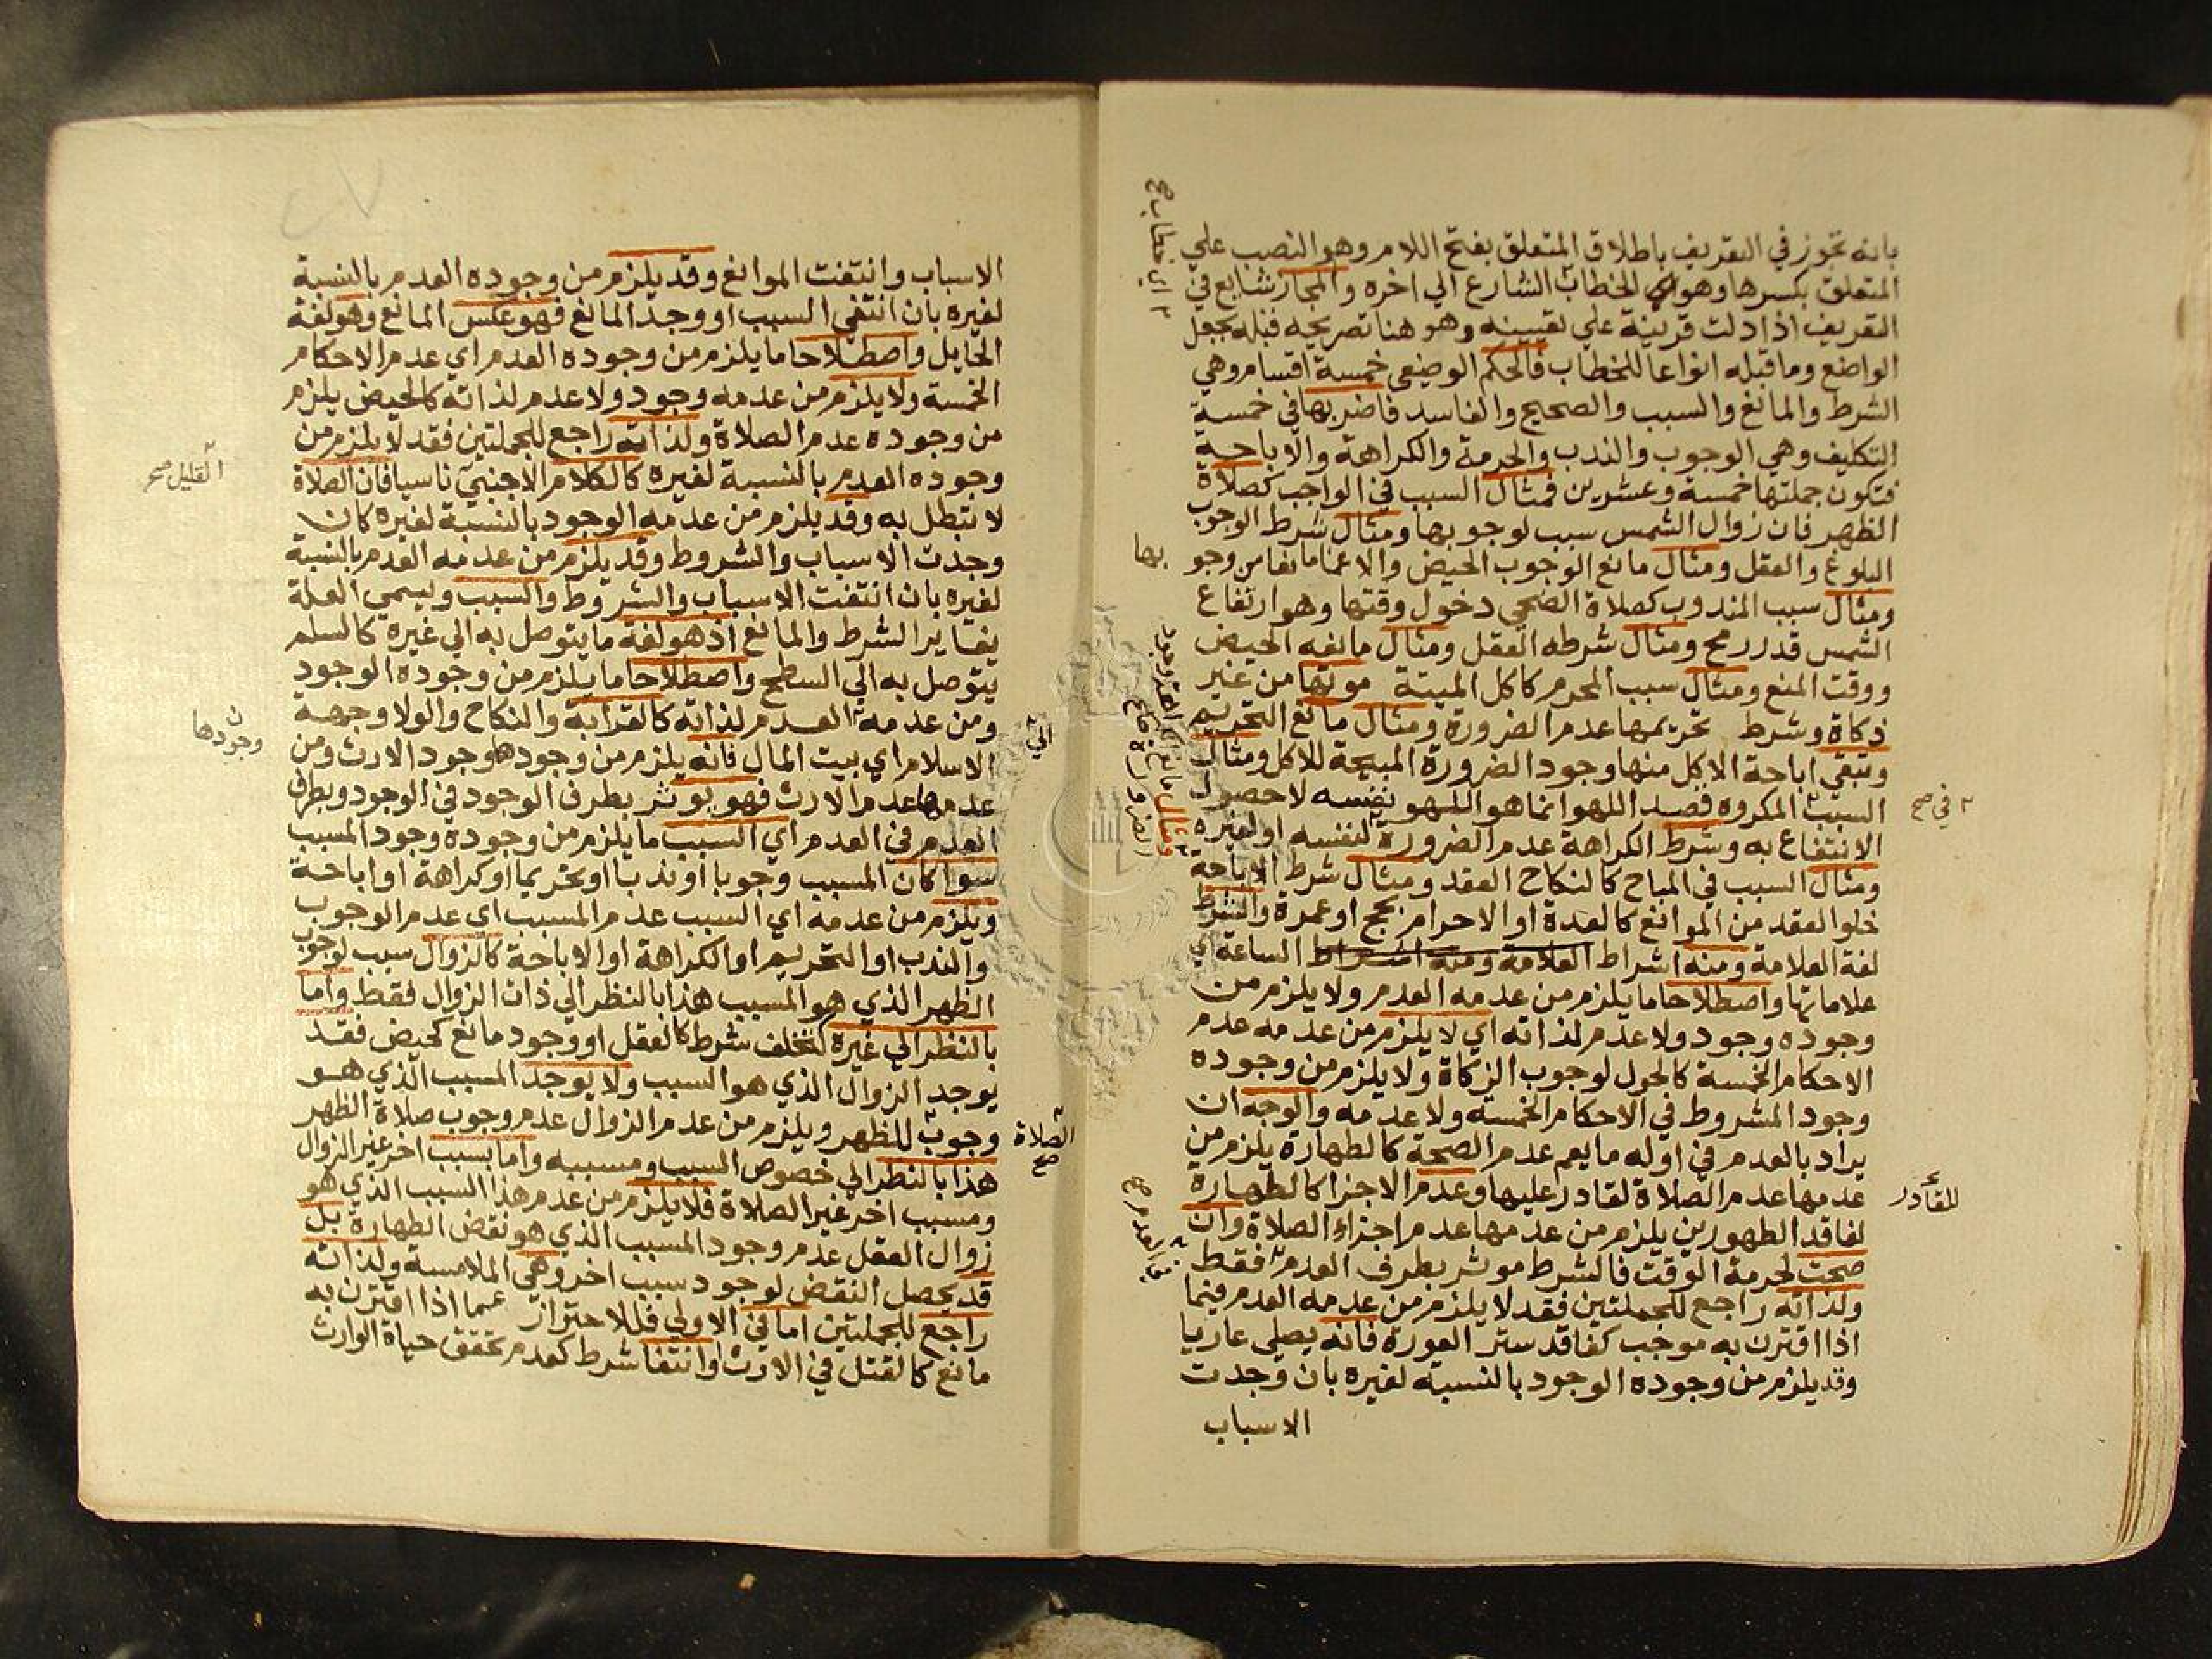 بانه تجوز في التعريف باطلاق المتعلق بفتح اللام وهو النصب علي
المتعلق بكسرها وهو اي الخطاب الشارع الي اخره والمجاز شايع في
التعريف اذا دلت قرينة علي تعيينه وهو هنا تصريحه قبله بجعل
الواضع وما قبله انواعا للخطاب فالحكم الوضعي خمسة اقسام وهي
الشرط والمانع والسبب والصحيح والفاسد فاضربها في خمسة
التكليف وهي الوجوب والندب والحرمة والكراهة والاباحة
فتكون جملتها خمسة وعشرين فمثال السبب في الواجب كصلاة
الظهر فان زوال الشمس سبب لوجوبها ومثال شرط الوجوب
البلوغ والعقل ومثال مانع الوجوب الحيض والاغما مانعا من وجو
بها
ومثال سبب المندوب كصلاة الضحي دخول وقتها وهو ارتفاع
الشمس قدر رمح ومثال شرطه العقل ومثال مانعه الحيض
ووقت المنع ومثال سبب المحرم كاكل الميتة موتها من غير
ذكاة وشرط تحريمها عدم الضرورة ومثال مانع التحريم
وتبقي اباحة الاكل منها وجود الضرورة المبيحة للاكل ومثال
السبب المكروه قصد اللهو انما هو اللهو بنفسه لا حصول
في صح
الانتفاع به وشرط الكراهة عدم الضرورة لنفسه او لغيره
ومثال السبب في المباح كالنكاح العقد ومثال شرط الاباحة
خلو العقد من الموانع كالعدة او الاحرام بحج او عمرة والشرط
لغة العلامة ومنه اشراط العلامة ومنه اشراط الساعة اي
علاماتها واصطلاحا ما يلزم من عدمه العدم ولا يلزم من
وجوده وجود ولا عدم لذاته اي لا يلزم من عدمه عدم
الاحكام الخمسة كالحول لوجوب الزكاة ولا يلزم من وجوده
وجود المشروط في الاحكام الخمسة ولا عدمه والوجه ان
يراد بالعدم في اوله ما يعم عدم الصحة كالطهارة يلزم من
عدمها عدم الصلاة لقادر عليها وعدم الاجزا كالطهارة
للقادر
لفاقد الطهورين يلزم من عدمها عدم اجزاء الصلاة وان
صحت لحرمة الوقت فالشرط موثر بطرف العدم فقط
ولذاته راجع للجملتين فقد لا يلزم من عدمه العدم فيما
اذا اقترن به موجب كفاقد ستر العورة فانه يصلي عاريا
وقد يلزم من وجوده الوجود بالنسبة لغيره بان وجدت
الاسباب
الاسباب وانتفت الموانع وقد يلزم من وجوده العدم بالنسبة
لغيره بان انتفي السبب او وجد المانع فهو عكس المانع وهو لغة
الحايل واصطلاحا ما يلزم من وجوده العدم اي عدم الاحكام
الخمسة ولا يلزم من عدمه وجود ولا عدم لذاته كالحيض يلزم
من وجوده عدم الصلاة ولذاته راجع للجملتين فقد لا يلزم من
وجوده العدم بالنسبة لغيره كالكلام الاجنبي ناسيا فان الصلاة
القليل صح
لا تبطل به وقد يلزم من عدمه الوجود بالنسبة لغيره كان
وجدت الاسباب والشروط وقد يلزم من عدمه العدم بالنسبة
لغيره بان انتفت الاسباب والشروط والسبب ويسمي العلة
يغاير الشرط والمانع اذ هو لغة ما يتوصل به الي غيره كالسلم
يتوصل به الي السطح واصطلاحا ما يلزم من وجوده الوجود
ومن عدمه العدم لذاته كالقرابة والنكاح والولا وجهة
الاسلام اي بيت المال فانه يلزم من وجودها وجود الارث ومن
وجودها
عدمها عدم الارث فهو يوثر بطرف الوجود في الوجود وبطرف
العدم في العدم اي السبب ما يلزم من وجوده وجود المسبب
سوا كان المسبب وجوبا او ندبا او تحريما او كراهة او اباحة
ويلزم من عدمه اي السبب عدم المسبب اي عدم الوجوب
والندب او التحريم او الكراهة او الاباحة كالزوال سبب لوجوب
الظهر الذي هو المسبب هذا بالنظر الي ذات الزوال فقط واما
بالنظر الي غيره لتخلف شرط كالعقل او وجود مانع كحيض فقد
يوجد الزوال الذي هو السبب ولا يوجد المسبب الذي هو
وجوب للظهر ويلزم من عدم الزوال عدم وجوب صلاة الظهر
الصلاة صح
هذا بالنظر الي خصوص السبب ومسببه واما بسبب اخر غير الزوال
ومسبب اخر غير الصلاة فلا يلزم من عدم هذا السبب الذي هو
زوال العقل عدم وجود المسبب الذي هو نقض الطهارة بل
قد يحصل النقض لوجود سبب اخر وهي الملامسة ولذاته
راجع للجملتين اما في الاولي فللاحتراز عما اذا اقترن به
مانع كالقتل في الارث او انتفا شرط كعدم تحقق حياة الوارث